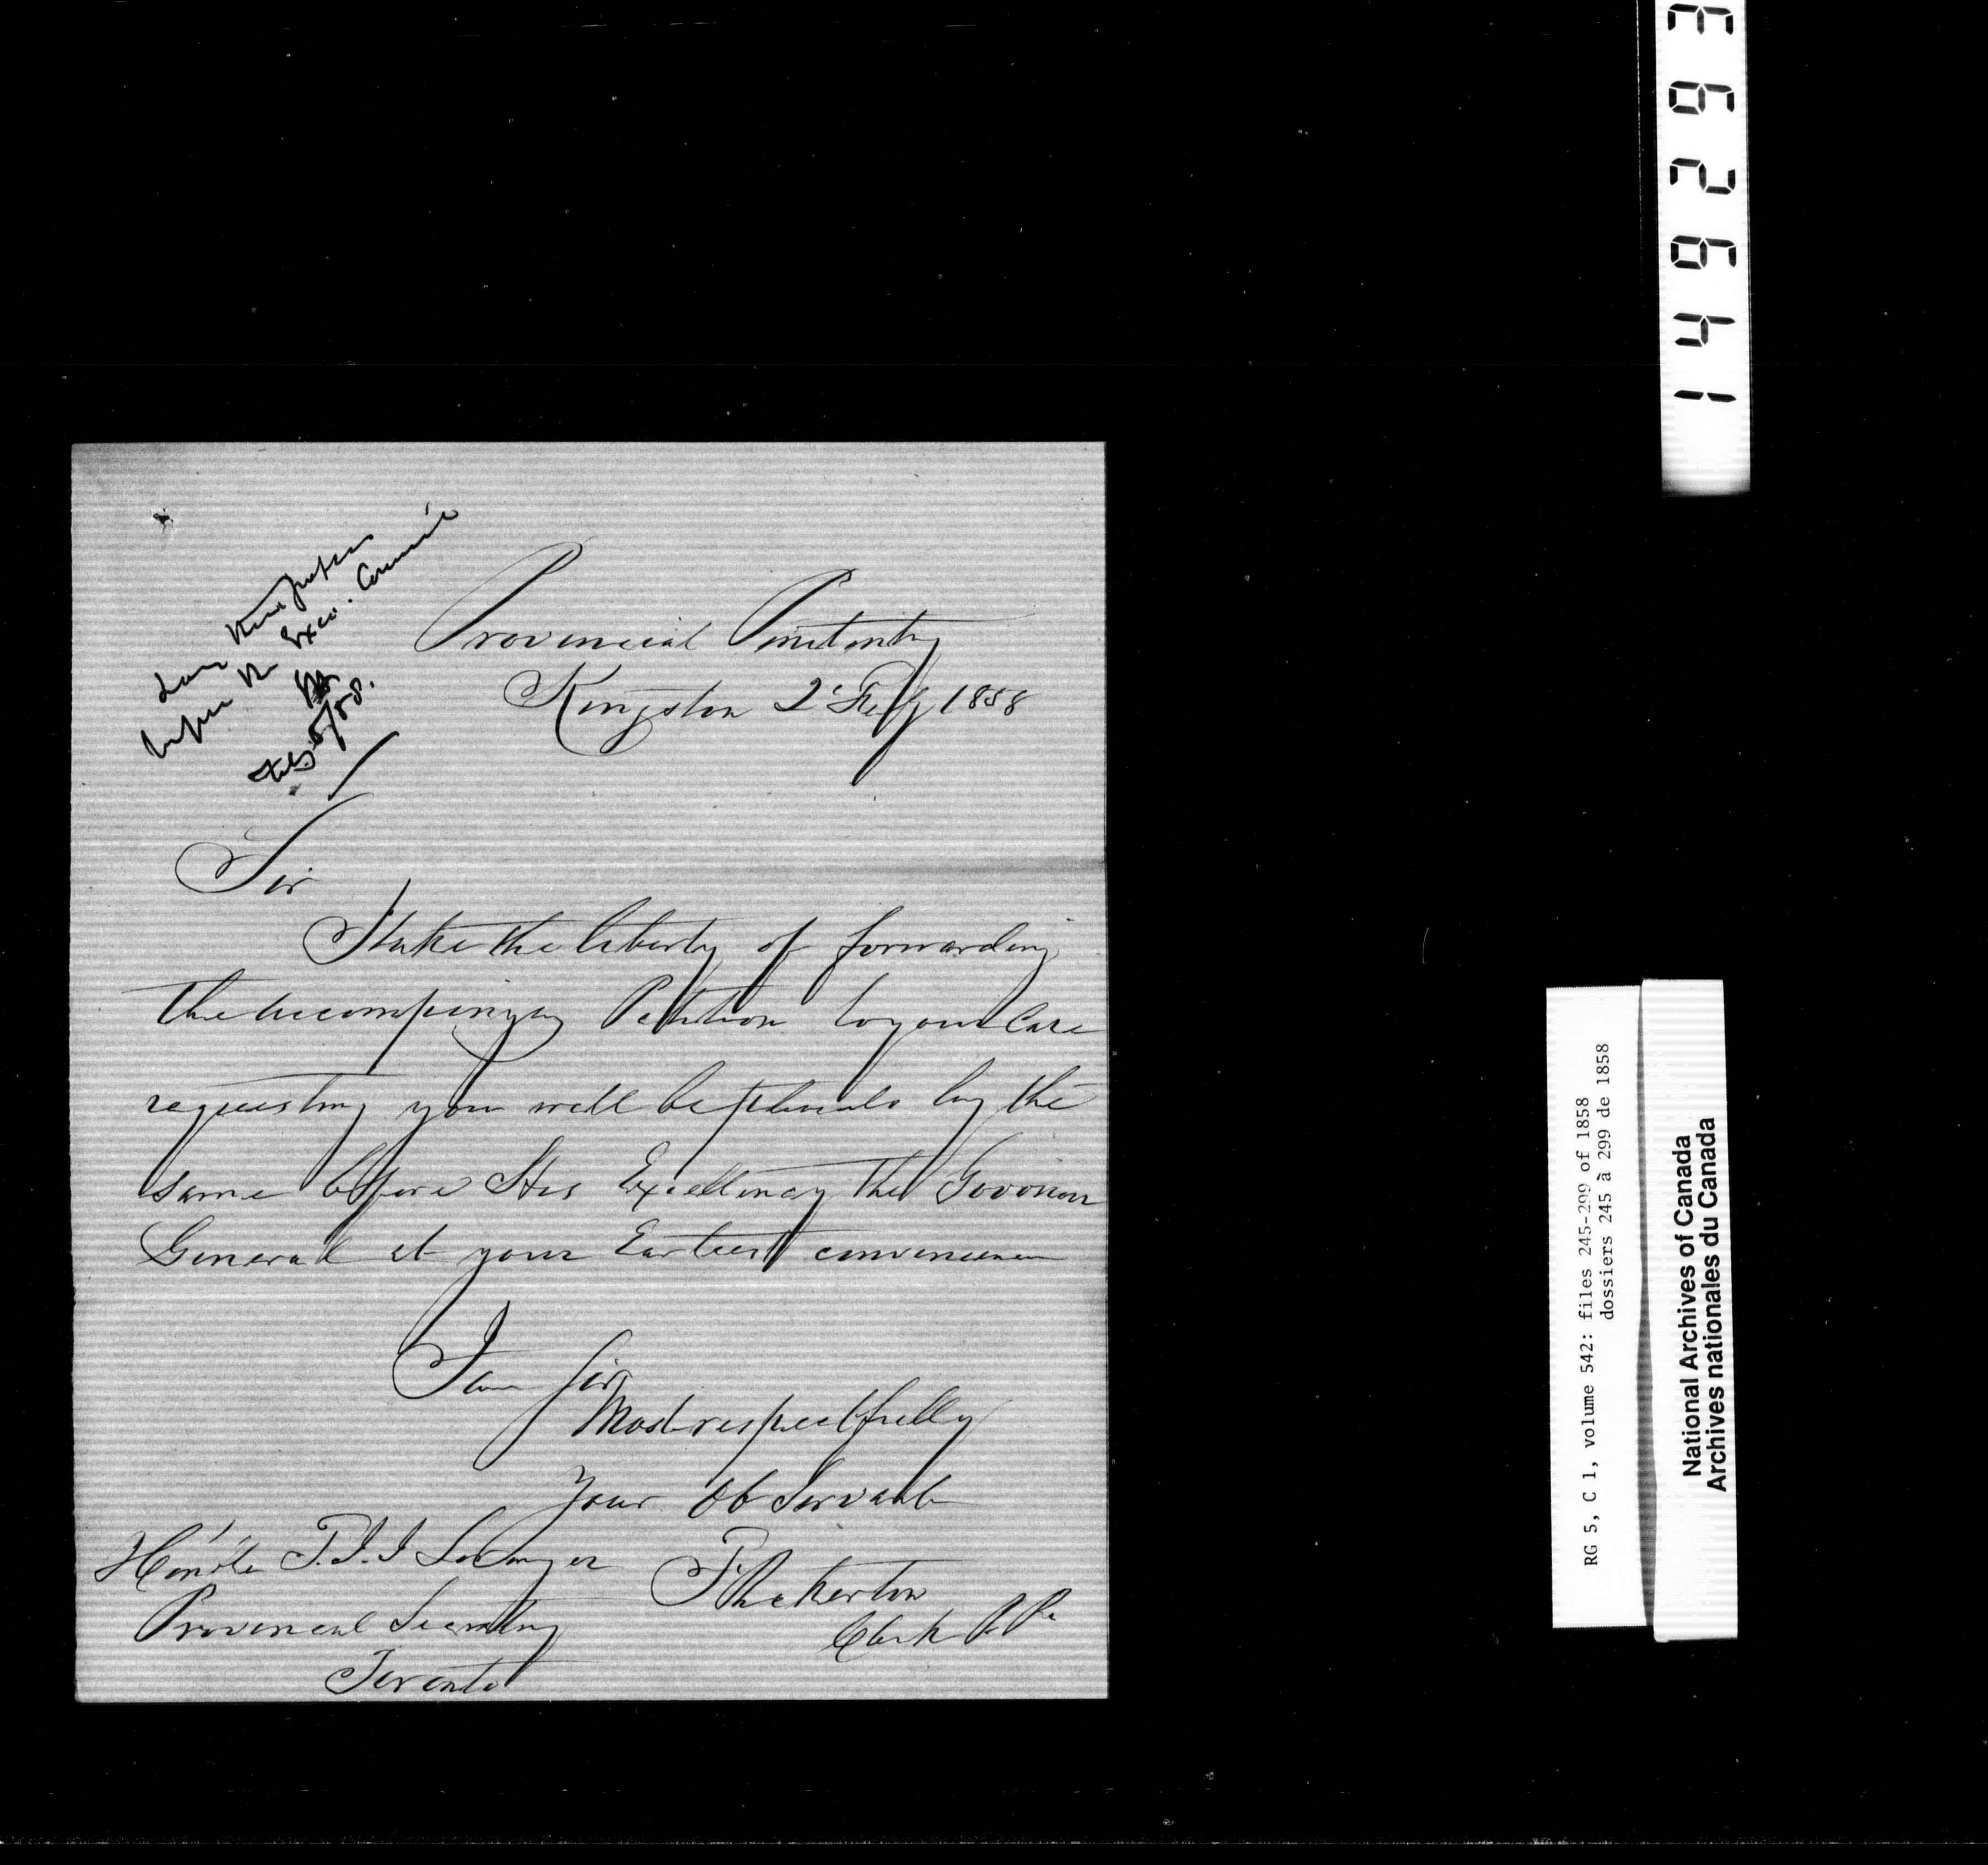 Lay these papers
before the Exec. Council
Feby 5/58.
Provincial Penitenty
Kingston 2d Feby 1858
Sir
I take the liberty of forwarding
the accompanying Petition to your Care
requesting you will be pleased lay the
same before His Excellency the Govenor
General at your Earliest convenience
I am Sir
Most respectfully
Your Ob Servant
Hon'ble T.J.J Loranger
Provincial Secretary
Toronto
Clerk P. P.
144629E
RG 5, C 1, volume 542: files 245-299 of 1858
dossiers 245 à 299 de 1858
National Archives of Canada
Archives nationales du Canada